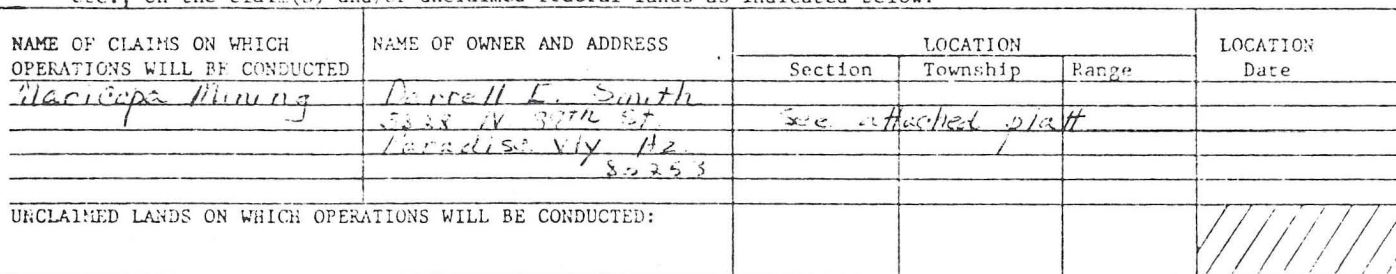 etc., on the claim(s) and/or unclaimed federal lands as indicated below:
NAME OF CLAIMS ON WHICH OPERATIONS WILL BE CONDUCTED
NAME OF OWNER AND ADDRESS
LOCATION
Section Township Range
LOCATION Date
Maricopa Mining
Darrell E. Smith
N St.
See attached platt
Paradise Vly Az.
85253
UNCLAIMED LANDS ON WHICH OPERATIONS WILL BE CONDUCTED: